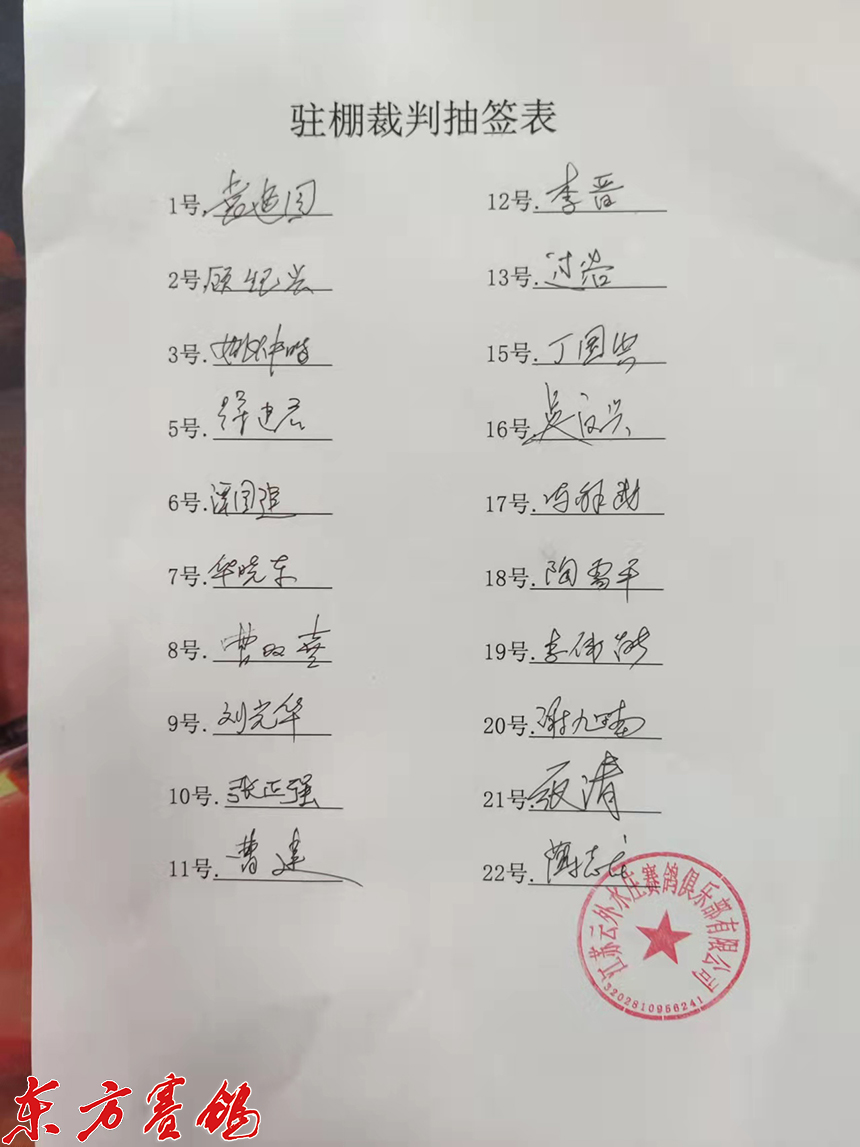 驻棚裁判抽签表
1号.
12号.李晋
2号.顾纪兴
13号.过岩
3号.姚仲
15号.丁国兴
5号.建君
16号.吴汉兴
6号.国强
17号.
7号.华晓东
18号.陶雪平
8号.曹
19号.李伟
9号.刘光华
20号.谢九
10号.张正强
21号.张清
11号.曹建
22号.志龙
江苏云外水庄赛鸽俱乐部有限公司
3202810966241
东方赛鸽